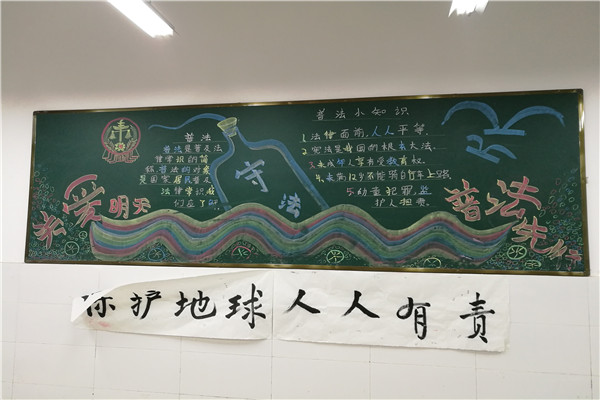 普法
普法是普及法
律常识的简
称，普法的对象
是国家居民普及
法律常识，使
们在了解
守法
普法小知识
1.法律面前，人人平等
2.宪法是我国的根本大法.
3.未成年人享有受教育权.
4.未满12岁不能骑自行车上路
5.幼童犯罪，监
护人担责.
爱明天
普法先行
保护地球人人有责